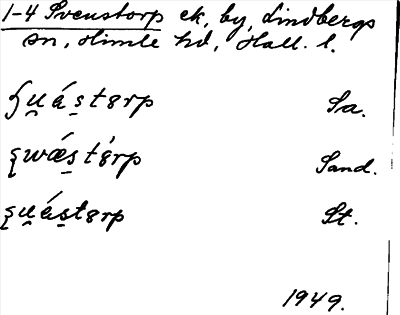 1-4 Svenstorp ek, by, Lindbergs
sn, Himle hd, Hall. l.
ʂu̯á̱s̱tɵrp Sa.
ʂwǽs̱tɵ́rp Sand.
ʂu̯á̱s̱tɵrp St.
1949.